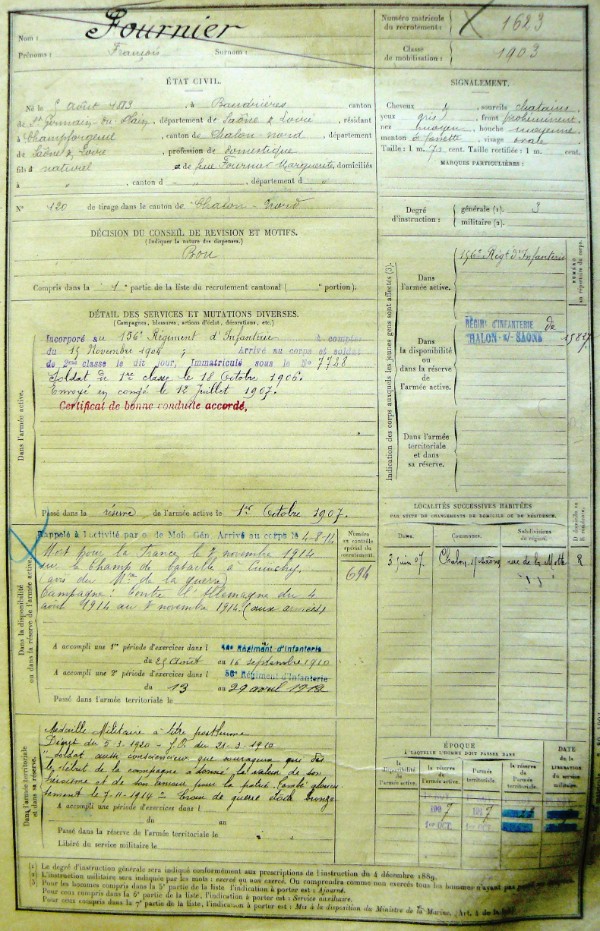 Nom : Fournier
Prénoms : François Surnom :
Numéro matricule du recrutement : 1623
Classe de mobilisation : 1903
ÉTAT CIVIL.
Né le août 1883, à Baudrières, canton
de St Germain du Plain, département de Saône & Loire, résidant
à Champforgeuil, canton de Chalon nord, département
de Saône & Loire, profession de domestique
fils d naturel et de feue Fournier Marguerite, domiciliés
à , canton d , département d
N° 120 de tirage dans le canton de Chalon-Nord
DÉCISION DU CONSEIL DE REVISION ET MOTIFS.
(Indiquer la nature des dispenses.)
Bon
Compris dans la 1e partie de la liste du recrutement cantonal ( portion).
SIGNALEMENT.
Cheveux & sourcils châtains
yeux gris, front proéminent
nez moyen, bouche moyenne
menton à fossette, visage ovale
Taille : 1 m. cent. Taille rectifiée : 1 m. cent.
MARQUES PARTICULIÈRES :
Degré d'instruction : générale (1). 3
militaire (2).
DÉTAIL DES SERVICES ET MUTATIONS DIVERSES.
(Campagnes, blessures, actions d'éclat, décorations, etc.)
Dans l'armée active.
Incorporé au 156e Régiment d'Infanterie à compter
du 15 Novembre 1904 ; Arrivé au corps et soldat
de 2ème classe le dit jour, Immatriculé sous le N° 7788
Soldat de 1re classe le 18 Octobre 1906.
Envoyé en congé le 12 Juillet 1907.
Certificat de bonne conduite accordé.
Passé dans la réserve de l'armée active le 1er Octobre 1907.
Indication des corps auxquels les jeunes gens sont affectés (3).
NUMÉRO au répertoire du corps.
Dans l'armée active.
156e Régt d'Infanterie
Dans la disponibilité ou dans la réserve de l'armée active.
RÉGIM. D'INFANTERIE de
CHALON-s/-SAÔNE
Dans l'armée territoriale et dans sa réserve.
LOCALITÉS SUCCESSIVES HABITÉES
PAR SUITE DE CHANGEMENTS DE DOMICILE OU DE RÉSIDENCE.
Dates. Communes. Subdivisions de région. D domicile ou R résidence.
3 Juin 07 Chalon s/Saône rue de la Motte R
Dans la disponibilité ou dans la réserve de l'armée active.
Rappelé à l'activité par o de Mob. Gén. Arrivé au corps le 4-8-14
Mort pour la France le 7 novembre 1914
sur le champ de bataille à Cuinchy
(avis du Mtre de la guerre)
Campagne : Contre l'Allemagne du 4
août 1914 au 7 novembre 1914 (aux armées)
Numéros au contrôle spécial du recrutement.
694
A accompli une 1re période d'exercices dans l Régiment d'Infanterie
du 25 Août au 16 septembre 1910
A accompli une 2e période d'exercices dans l 56e Régiment d'Infanterie
du 13 au 29 avril 1912
Passé dans l'armée territoriale le
Dans l'armée territoriale et dans sa réserve.
Médaille Militaire à titre posthume
Décret du 5.3.1920 - J.O. du
"Soldat aussi consciencieux que courageux qui dès
le début de la campagne a donné la valeur de son
héroïsme et de son amour pour la patrie. Tombé glorieusement
le 7-11-1914" Croix de guerre étoile bronze
A accompli une période d'exercices dans l
du au
Passé dans la réserve de l'armée territoriale le
Libéré du service militaire le
ÉPOQUE
À LAQUELLE L'HOMME DOIT PASSER DANS
la disponibilité de l'armée active.
la réserve de l'armée active.
l'armée territoriale.
la réserve de l'armée territoriale.
DATE DE LA LIBÉRATION du service militaire.
1907 1917
1er OCT. 1er OCT.
(1) Le degré d'instruction générale sera indiqué conformément aux prescriptions de l'instruction du 4 décembre 1889.
(2) L'instruction militaire sera indiquée par les mots : exercé ou non exercé. On comprendra comme non exercés tous les hommes n'ayant pas
(3) Pour les hommes compris dans la 5e partie de la liste l'indication à porter est : Ajourné.
Pour ceux compris dans la 6e partie de la liste, l'indication à porter est : Service auxiliaire.
Pour ceux compris dans la 7e partie de la liste, l'indication à porter est : Mis à la disposition du Ministre de la Marine, Art. 4 de la loi